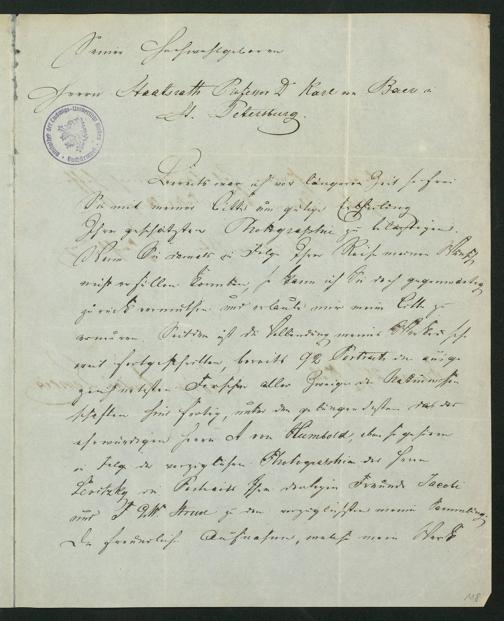 Seiner Hochwohlgeboren
Herrn Staatsrath Professor Dr Karl von Baer in
St. Petersburg.
Bereits war ich vor längerer Zeit so frei
Sie mit meiner Bitte um gütige Ertheilung
Ihrer geschätzten Photographie zu belästigen.
Wenn Sie damals in Folge Ihrer Reise meinen Wunsch
nicht erfüllen konnten, so kann ich Sie doch gegenwärtig
zurück vermuthen und erlaube mir meine Bitte zu
erneuern. Seitdem ist die Vollendung meines Werkes sehr
weit fortgeschritten, bereits 92 Portraits der ausge
zeichnetesten Forscher aller Zweige der Naturwissen
schaften sind fertig, unter den gelungendesten das des
ehrwürdigen Herrn A von Humbold, eben so gehören
in Folge der vorzüglichen Photographien des Herrn
Levitzky die Portraits Ihrer dortigen Freunde Jacobi
und F. G. W. Struve zu den vorzüglichsten meiner Sammlung.
Die freundliche Aufnahme, welche mein Werk
118